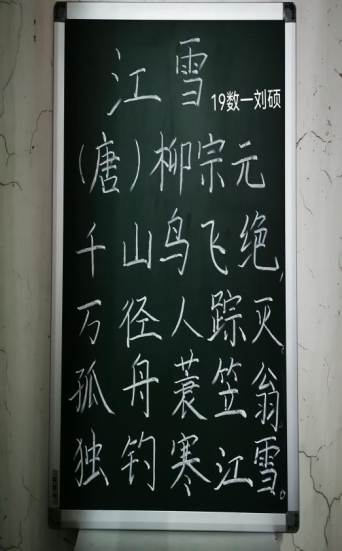 江雪
19数一刘硕
(唐)柳宗元
千山鸟飞绝,
万径人踪灭
孤舟蓑笠翁
独钓寒江雪。